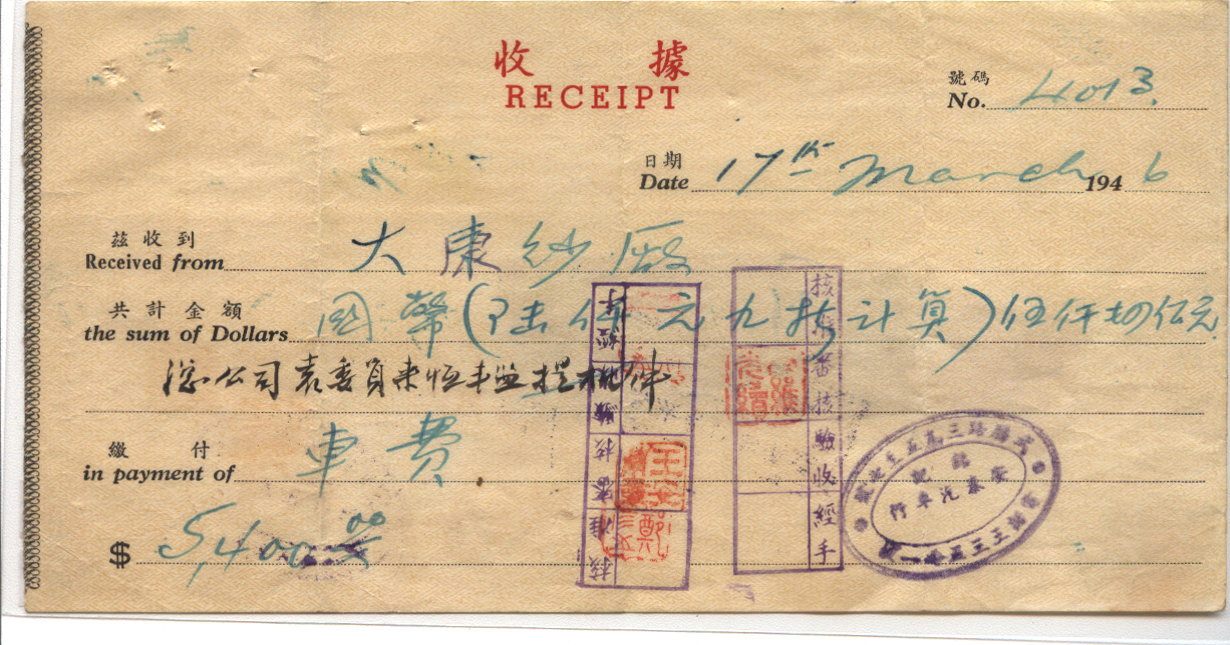 收據
RECEIPT
號碼
No. 4013
日期
Date 17th March 1946
茲收到
Received from 大康紗廠
共計金額
the sum of Dollars 國幣(陸仟元九折計算)伍仟肆佰元
總公司袁委員來恒豐監提機件
繳付
in payment of 車費
$ 5,400.00
核准 審核 驗收 經手
核准 審核 驗收 經手
安泰汽車行